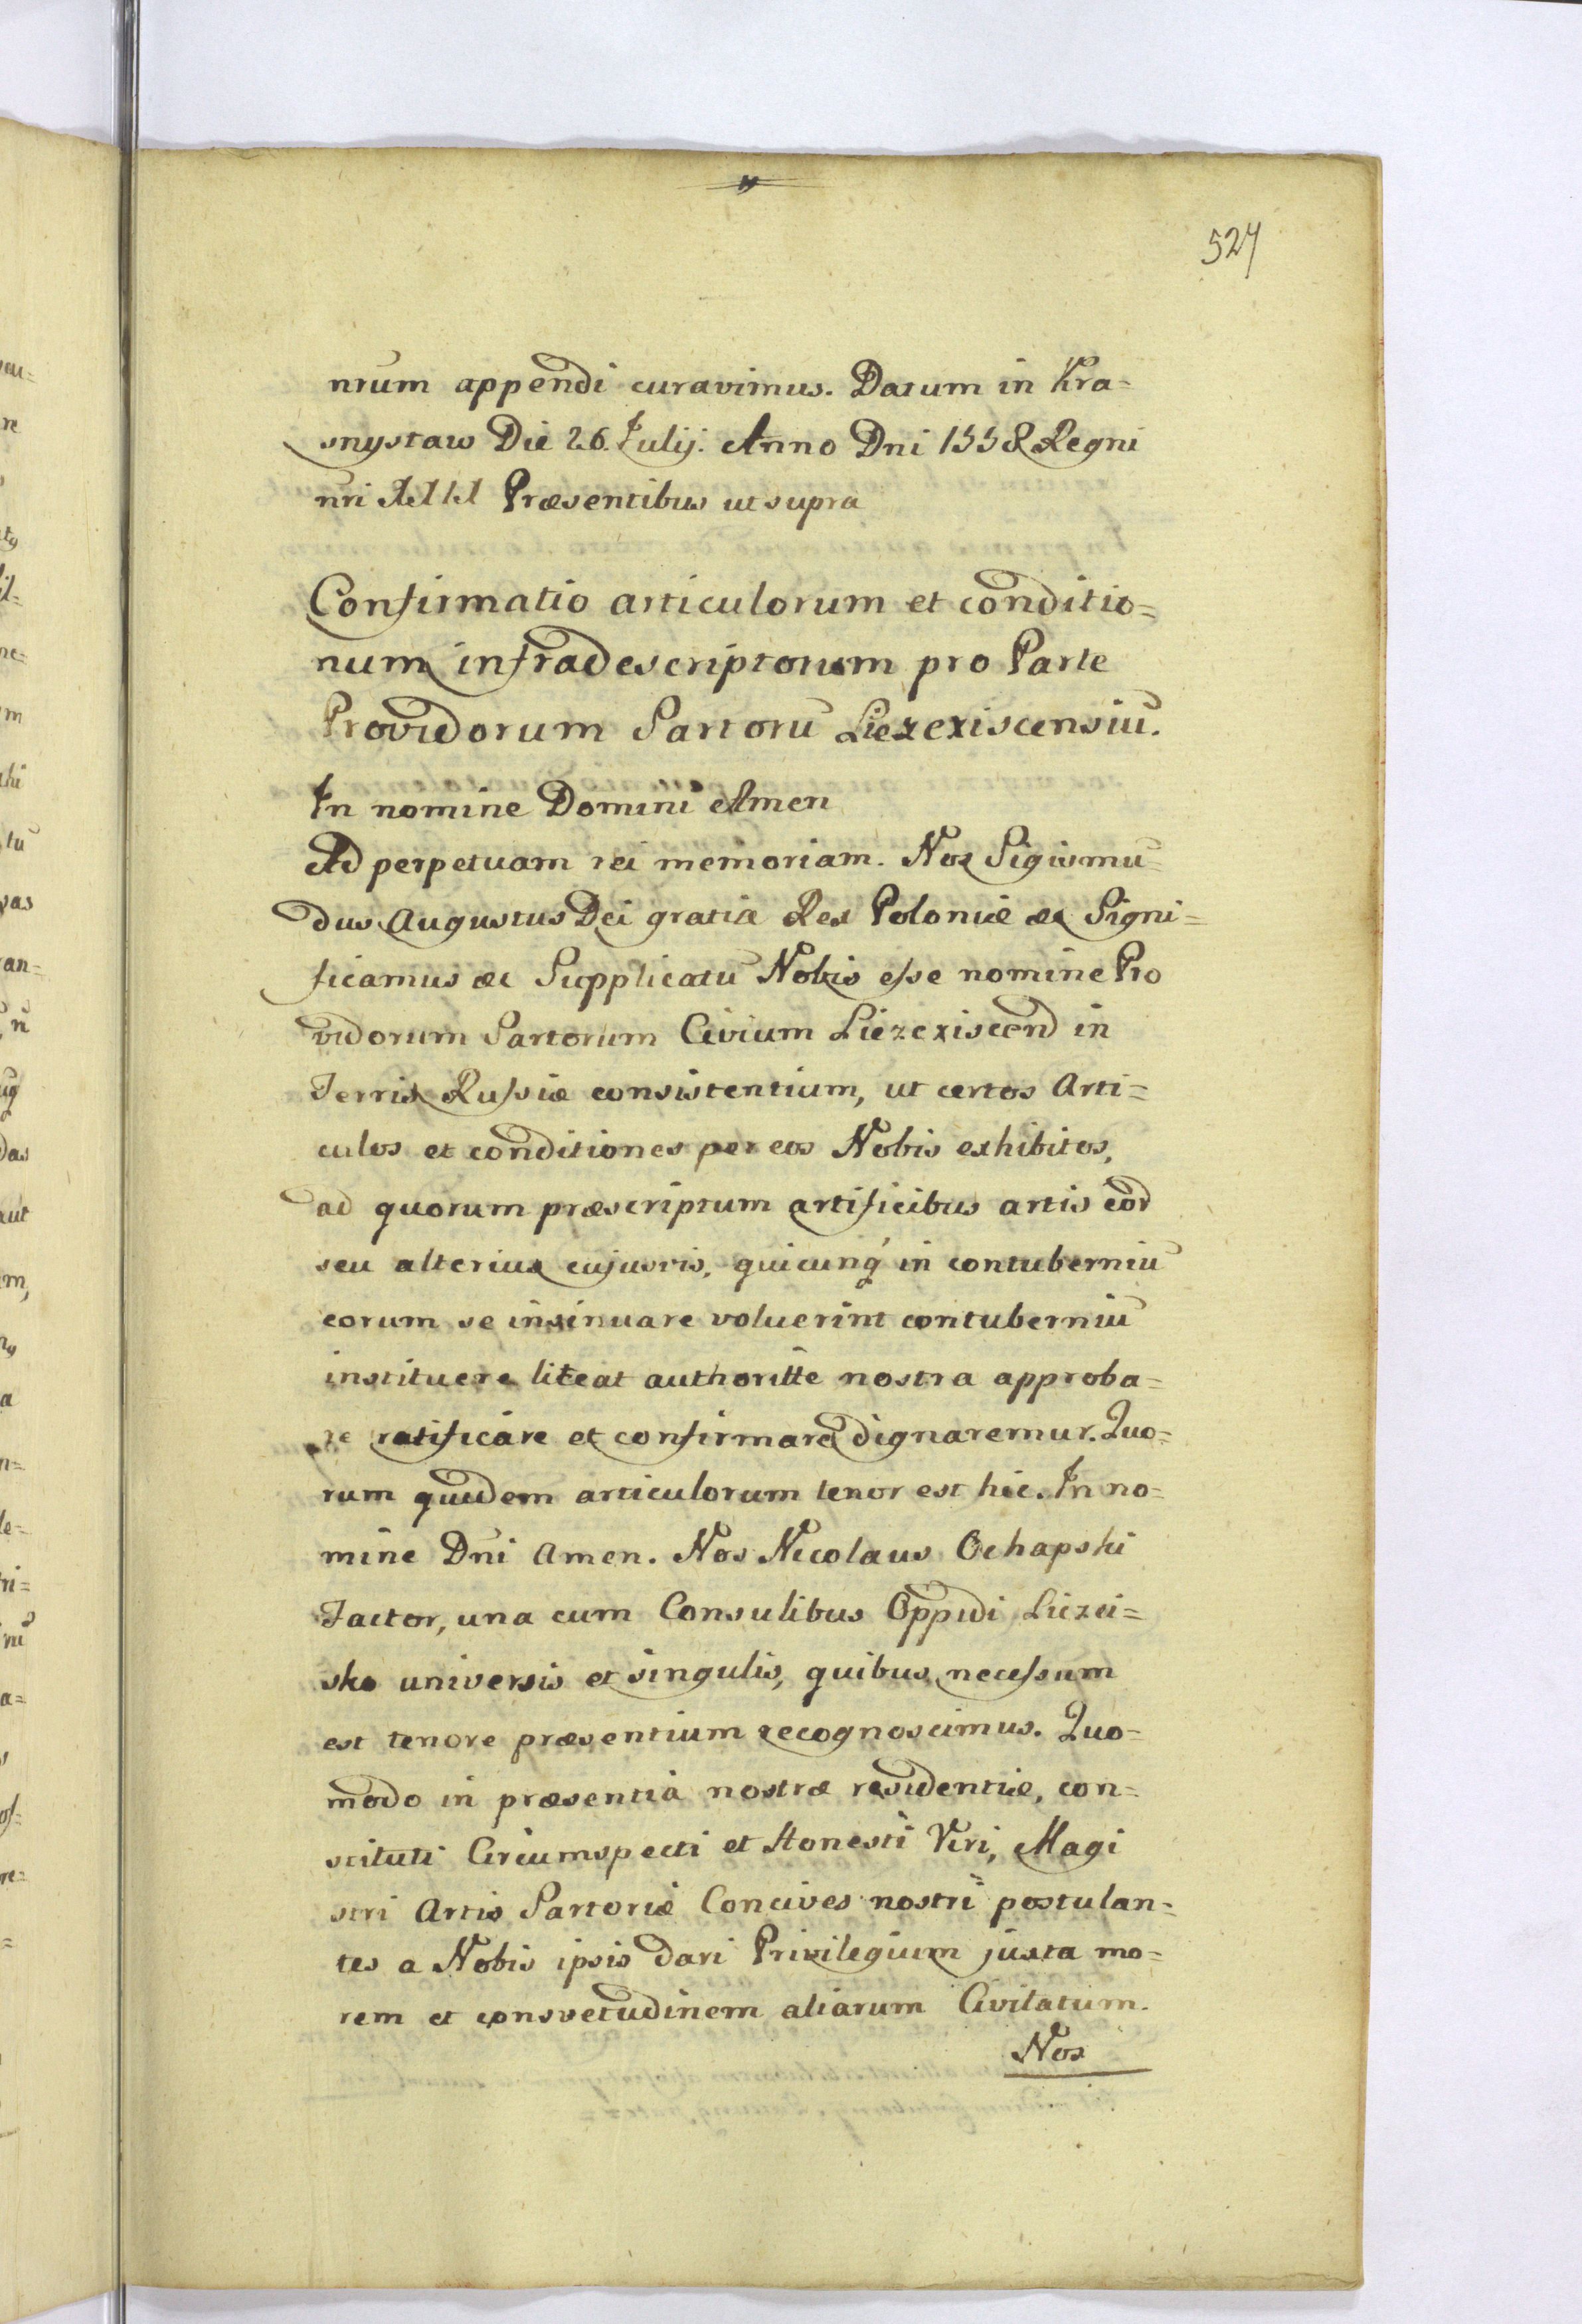 527
nrum appendi curavimus. Datum in Kra=
snystaw Die 26. Iulij. Anno Dni 1558 Regni
nri Præsentibus ut supra
Confirmatio articulorum et conditio=
num infradescriptorum pro Parte
Providorum Sartorū Liezexiscensiū.
In nomine Domini Amen
Ad perpetuam rei memoriam. Nos Sigismu
dus Augustus Dei gratia Rex Poloniæ &c Signi=
ficamus &c Supplicatū Nobis esse nomine Pro
vidorum Sartorum Civium Liezexiscen̄ in
Terris Russiæ consistentium, ut certos Arti=
culos et conditiones per eos Nobis exhibitos,
ad quorum præscriptum artificibus artis eor̄
seu alterius cujusvis, quicunq́ in contuberniū
eorum se insinuare voluerint contuberniū
instituere liceat authoritte nostra approba=
re ratificare et confirmare dignaremur. Quo=
rum quidem articulorum tenor est hic. In no=
mine Dni Amen. Nos Nicolaus Ochapski
Factor, una cum Consulibus Oppidi Liezai=
sko universis et singulis, quibus necessum
est tenore præsentium recognoscimus. Quo=
modo in præsentia nostræ residentiæ, con=
stituti Circumspecti et Honesti Viri, Magi
stri Artis Sartoriæ Concives nostri postulan=
tes a Nobis ipsis dari Privilegium juxta mo=
rem et consvetudinem aliarum Civitatum.
Nos